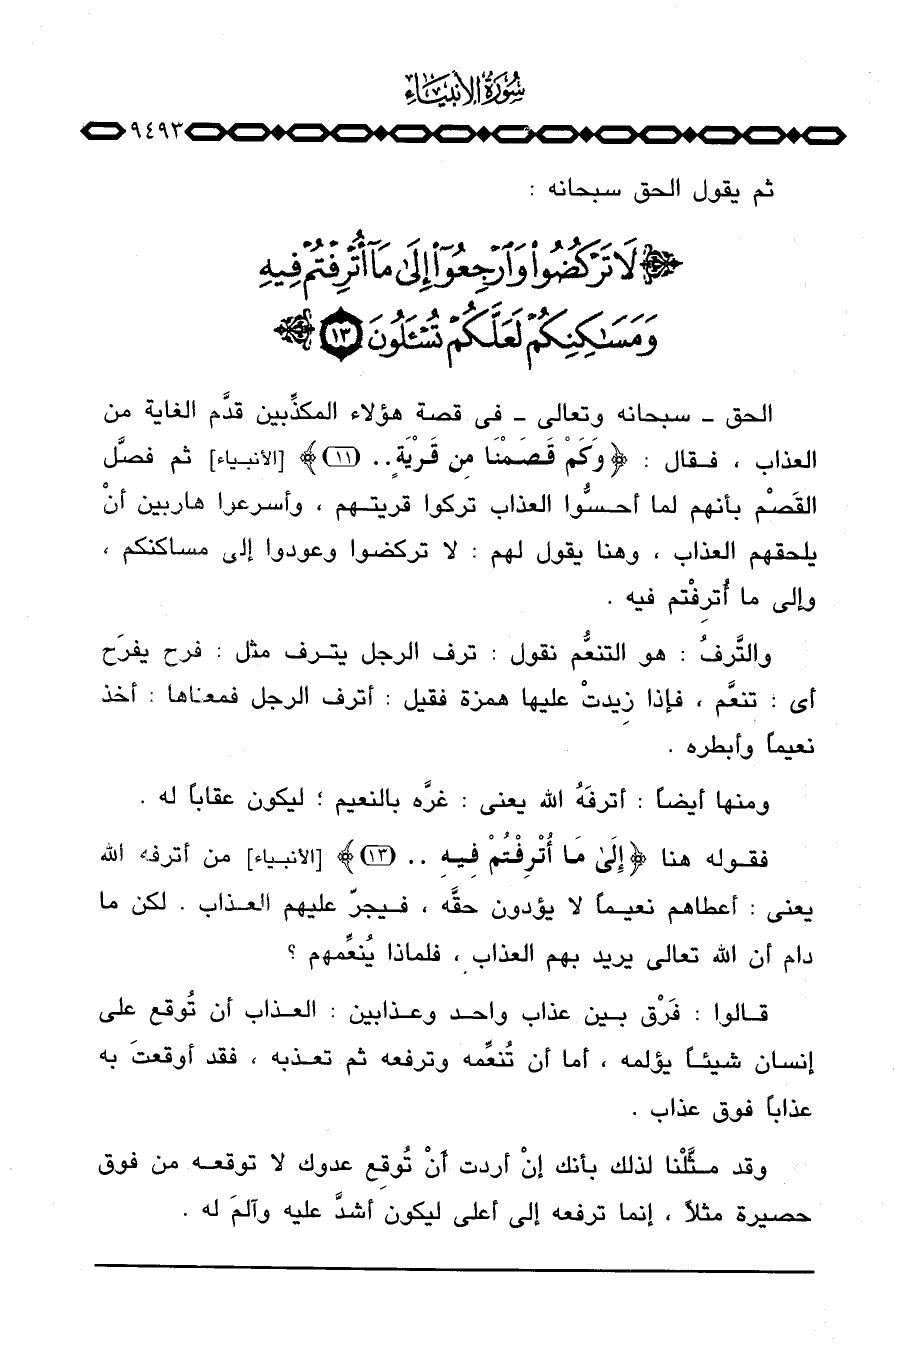 سورة الأنبياء
٩٤٩٣
ثم يقول الحق سبحانه :
﴿ لَا تَرْكُضُوا۟ وَٱرْجِعُوٓا۟ إِلَىٰ مَآ أُتْرِفْتُمْ فِيهِ
وَمَسَٰكِنِكُمْ لَعَلَّكُمْ تُسْـَٔلُونَ ١٣ ﴾
الحق ـ سبحانه وتعالى ـ فى قصة هؤلاء المكذِّبين قدَّم الغاية من
العذاب ، فقال : ﴿ وَكَمْ قَصَمْنَا مِن قَرْيَةٍ .. (١١) ﴾ [الأنبياء] ثم فصَّل
القَصْم بأنهم لما أحسُّوا العذاب تركوا قريتهم ، وأسرعوا هاربين أنْ
يلحقهم العذاب ، وهنا يقول لهم : لا تركضوا وعودوا إلى مساكنكم ،
وإلى ما أُترِفْتم فيه .
والتَّرفُ : هو التنعُّم نقول : ترف الرجل يترف مثل : فرح يفرَح
أى : تنعَّم ، فإذا زِيدتْ عليها همزة فقيل : أترف الرجل فمعناها : أخذ
نعيماً وأبطره .
ومنها أيضاً : أترفَهُ الله يعنى : غرَّه بالنعيم ؛ ليكون عقاباً له .
فقوله هنا ﴿ إِلَىٰ مَا أُتْرِفْتُمْ فِيهِ .. (١٣) ﴾ [الأنبياء] من أترفه الله
يعنى : أعطاهم نعيماً لا يؤدون حقَّه ، فيجرّ عليهم العذاب . لكن ما
دام أن الله تعالى يريد بهم العذاب ، فلماذا يُنعِّمهم ؟
قالوا : فَرْق بين عذاب واحد وعذابين : العذاب أن تُوقع على
إنسان شيئاً يؤلمه ، أما أن تُنعِّمه وترفعه ثم تعذبه ، فقد أوقعتَ به
عذاباً فوق عذاب .
وقد مثَّلْنا لذلك بأنك إنْ أردت أنْ تُوقِع عدوك لا توقعه من فوق
حصيرة مثلاً ، إنما ترفعه إلى أعلى ليكون أشدَّ عليه وآلمَ له .